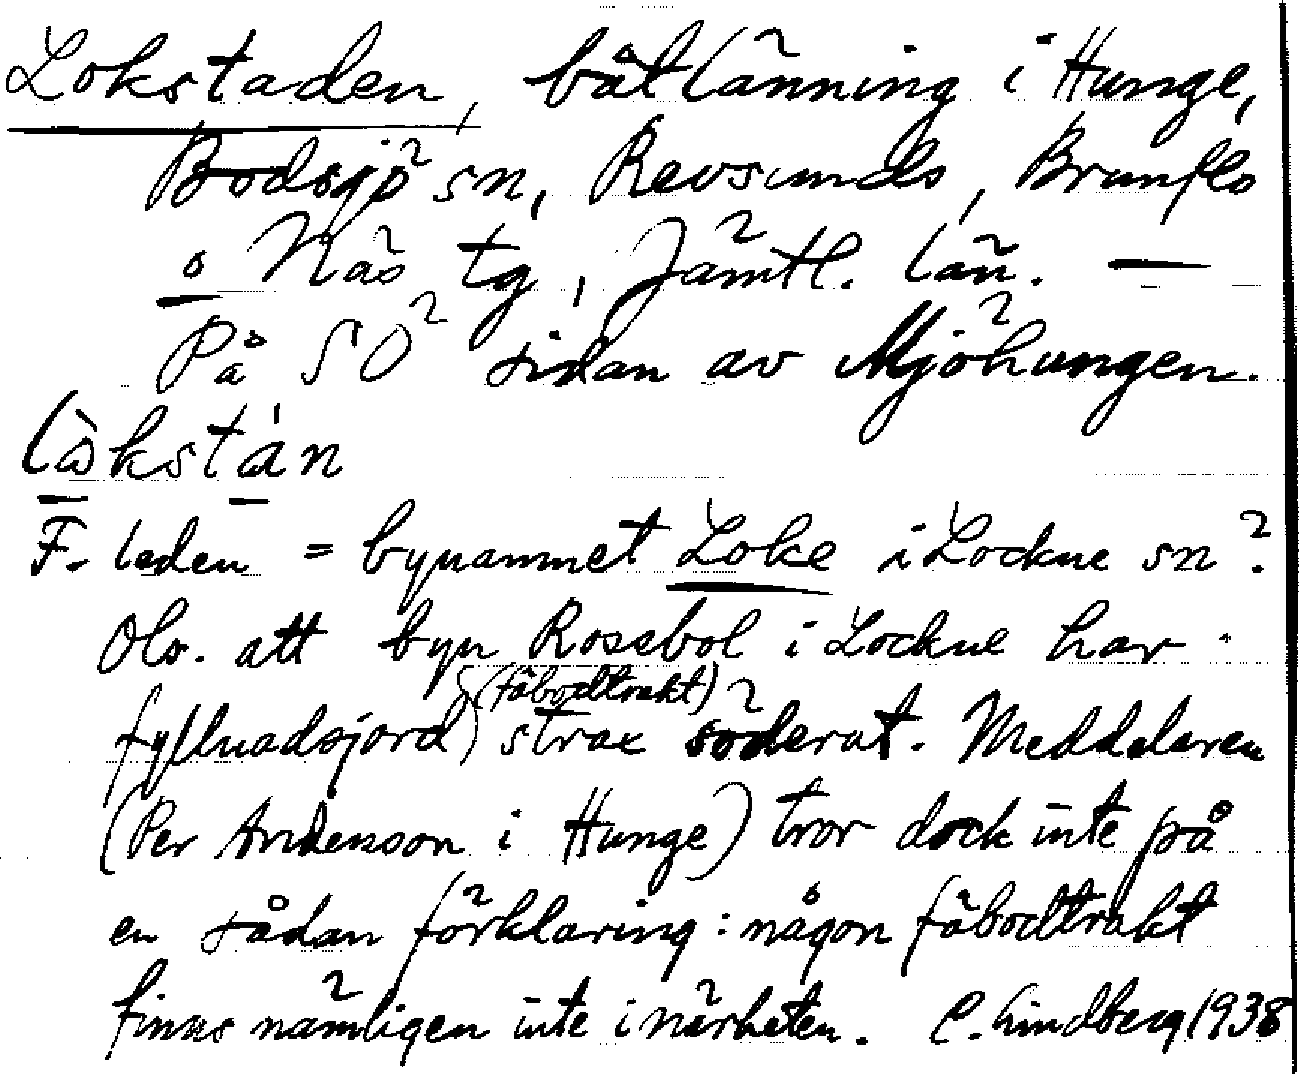 Lokstaden, båtlänning i Hunge,
Bodsjö sn, Revsunds, Brunflo
o Näs tg, Jämtl. län. —
På SÖ sidan av Mjöhungen.
lòkstán
F. leden = bynamnet Loke i Lockne sn?
Obs. att byn Rossbol i Lockne har
(fäbodtrakt)
fyllnadsjord) strax söderut. Meddelaren
(Per Andersson i Hunge) tror dock inte på
en sådan förklaring: någon fäbodtrakt
finns nämligen inte i närheten. C. Lindberg 1938